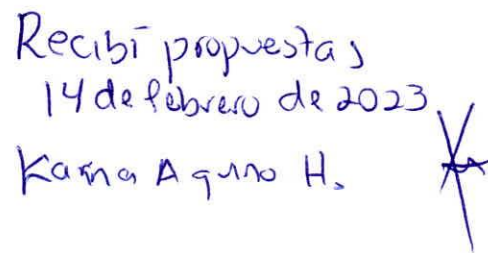 Recibí propuestas
14 de febrero de 2023
Karina Aquino H.